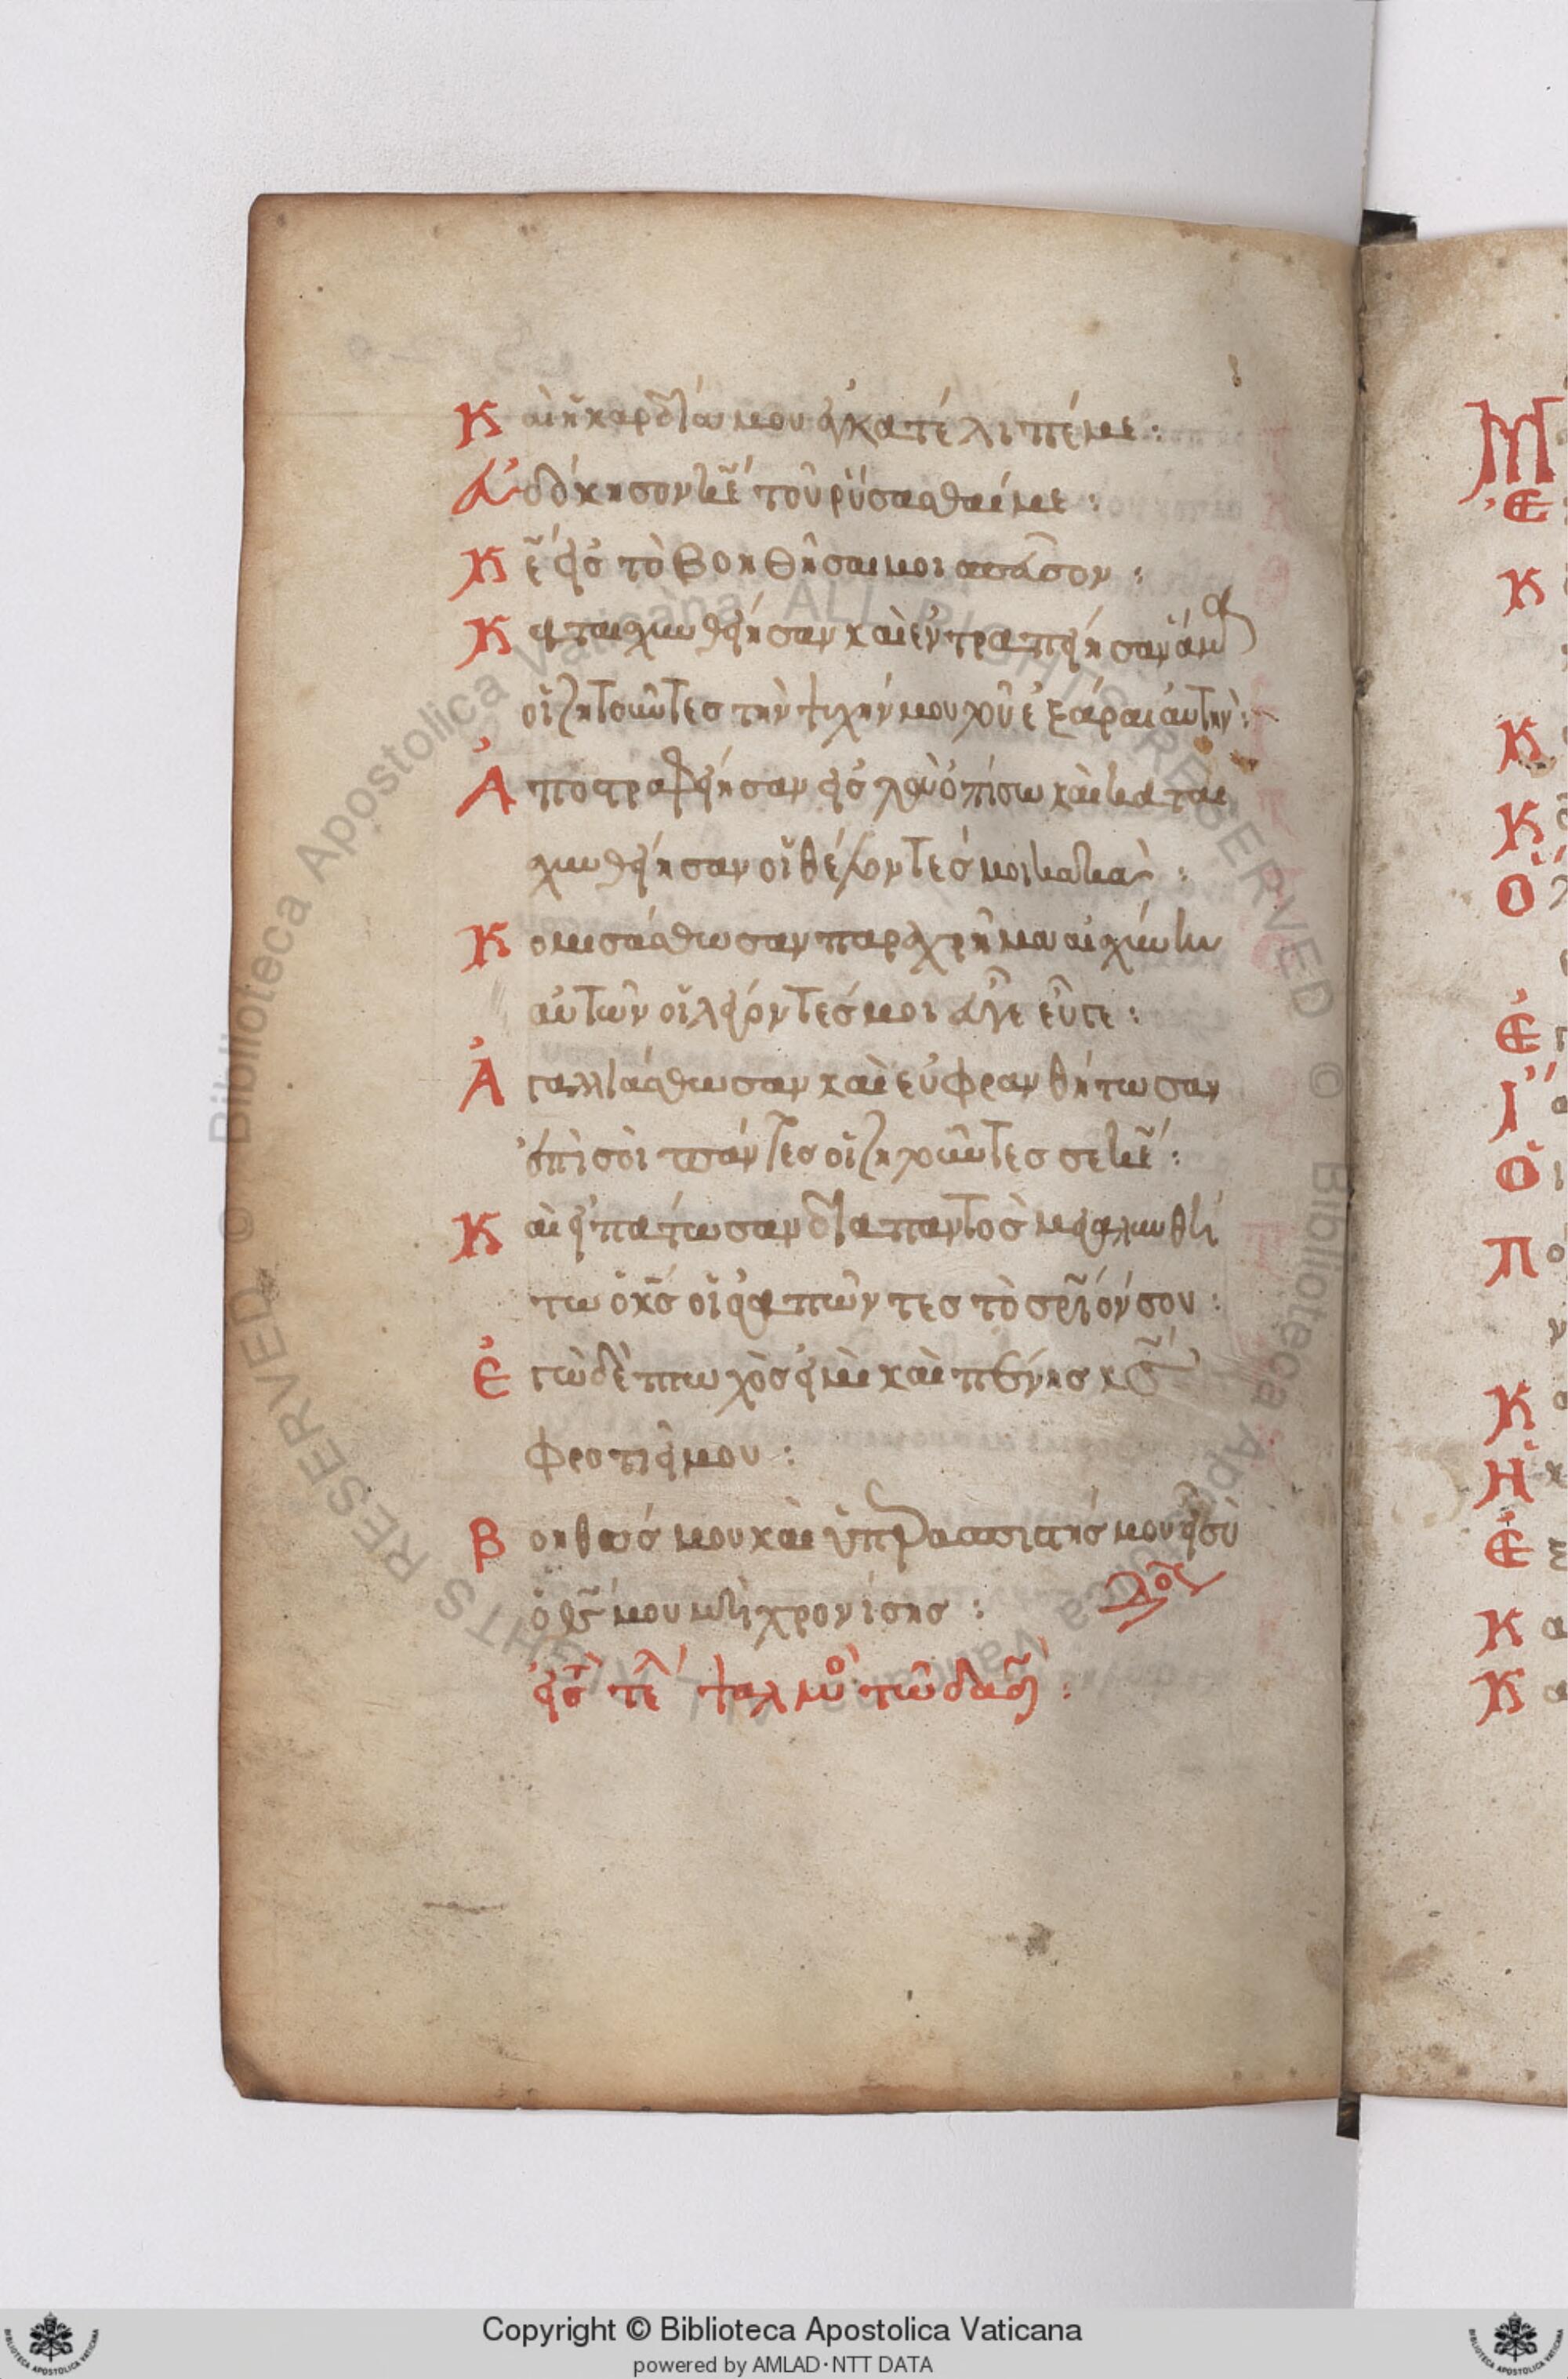 Καὶ ἡ καρδία μου ἐγκατέλιπέ με :
Εὐδόκησον κε τοῦ ρύσασθαί με :
Κε εἰς τὸ βοηθῆσαί μοι σπεῦσον :
Καταισχυνθείησαν καὶ ἐντραπείησαν ἅμα
οἱ ζητοῦντες τὴν ψυχήν μου τοῦ ἐξᾶραι αὐτήν :
Ἀποστραφείησαν εἰς τὰ ὀπίσω καὶ καται
σχυνθείησαν οἱ θέλοντές μοι κακά :
Κομισάσθωσαν παραχρῆμα αἰσχύνην
αὐτῶν οἱ λέγοντές μοι εὖγε εὖγε :
Ἀγαλλιάσθωσαν καὶ εὐφρανθήτωσαν
ἐπὶ σοὶ πάντες οἱ ζητοῦντές σε κε :
Καὶ εἰπάτωσαν διαπαντὸς μεγαλυνθή
τω ὁ κς οἱ ἀγαπῶντες τὸ σριόν σου :
Ἐγὼ δὲ πτωχός εἰμι καὶ πένης κς
φροντιεῖ μου :
Βοηθός μου καὶ ὑπερασπιστής μου εἶ σὺ
ὁ θς μου μὴ χρονίσης :
εἰς τὸ τέλ ψαλμὸς τῶ δαδ :
Copyright © Biblioteca Apostolica Vaticana
powered by AMLAD·NTT DATA